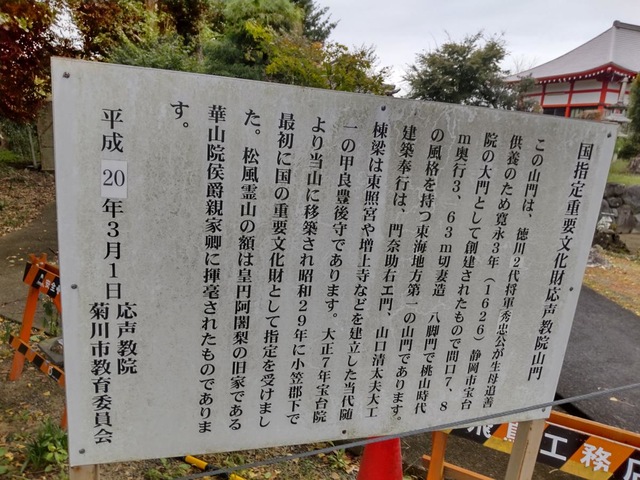 国指定重要文化財応声教院山門
この山門は、徳川２代将軍秀忠公が生母追善
供養のため寛永３年（１６２６）静岡市宝台
院の大門として創建されたもので間口７、８
ｍ奥行３、６３ｍ切妻造　八脚門で桃山時代
の風格を持つ東海地方第一の山門であります。
建築奉行は、門奈助右エ門、山口清太夫大工
棟梁は東照宮や増上寺などを建立した当代随
一の甲良豊後守であります。大正７年宝台院
より当山に移築され昭和２９年に小笠郡下で
最初に国の重要文化財として指定を受けまし
た。松風霊山の額は皇円阿闍梨の旧家である
華山院侯爵親家卿に揮毫されたものでありま
す。
平成20年３月１日　応声教院
菊川市教育委員会
工務店